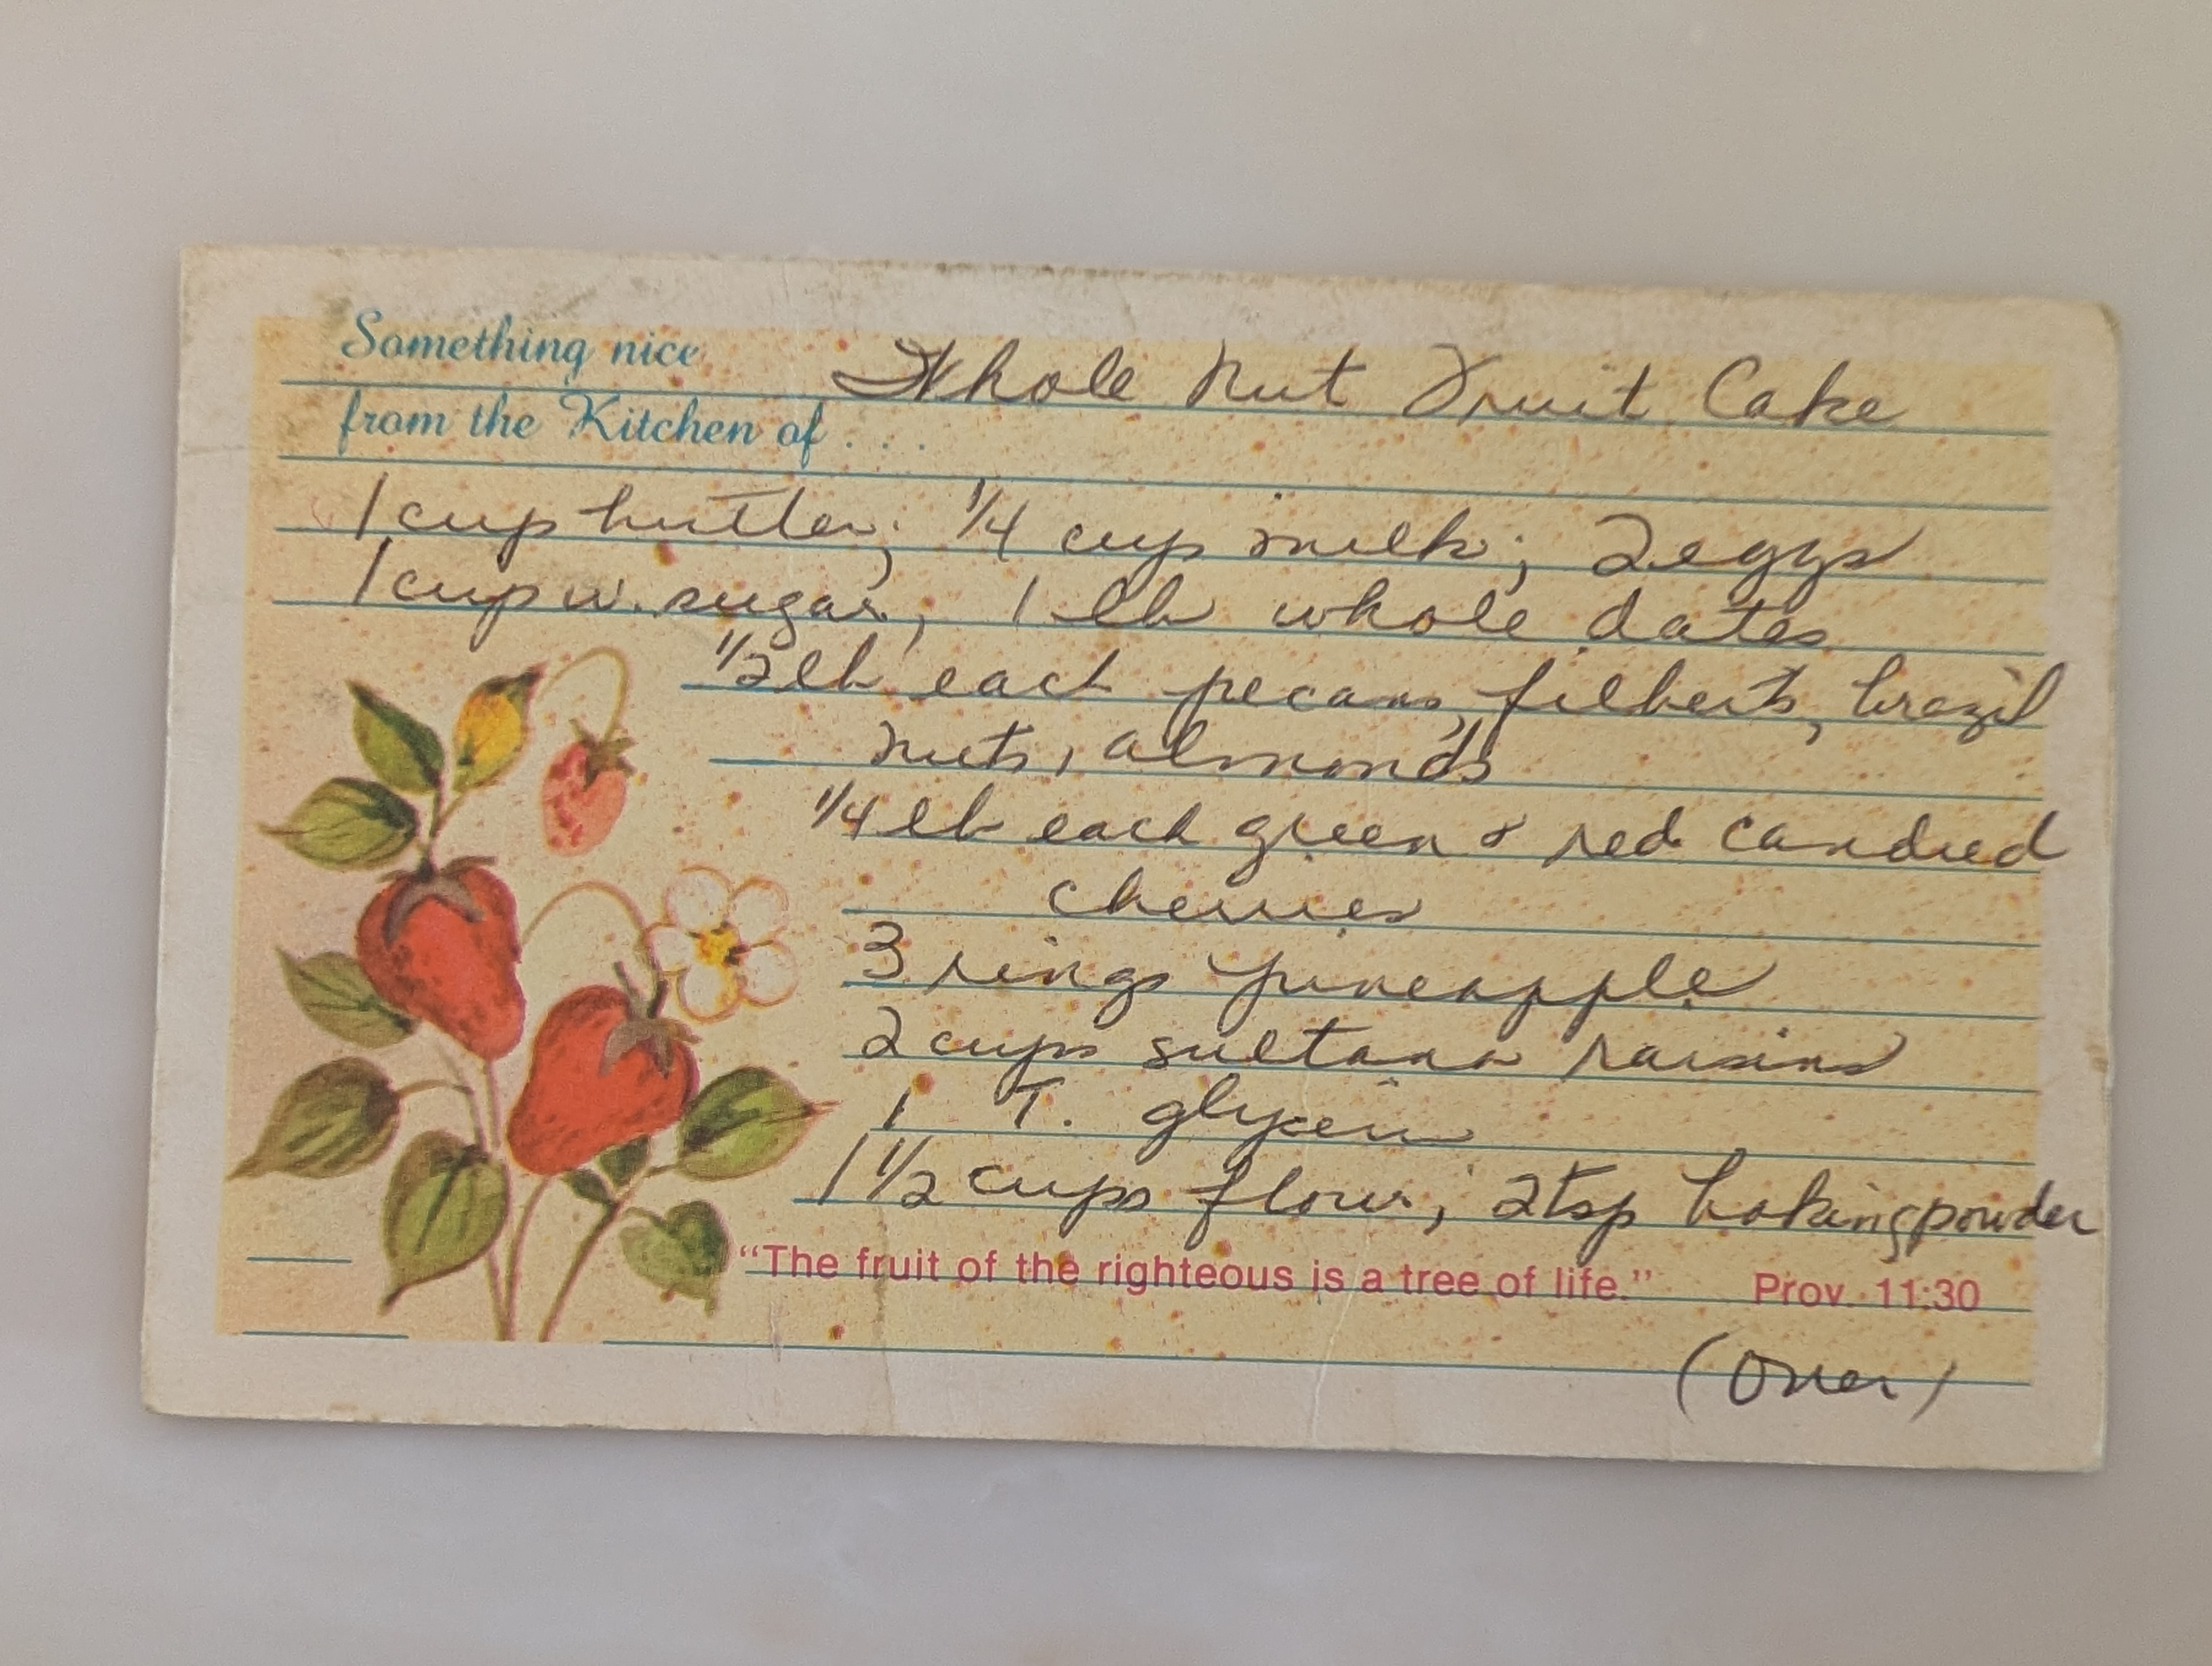 Something nice
from the Kitchen of . . .
Whole Nut Fruit Cake
1 cup butter; 1/4 cup milk; 2 eggs
1 cup w. sugar, 1 lb whole dates
1/2 lb each pecans, filberts, brazil
nuts, almonds
1/4 lb each green & red candied
cherries
3 rings pineapple
2 cups sultana raisins
1 T. glycerin
1 1/2 cups flour; 2 tsp baking powder
"The fruit of the righteous is a tree of life." Prov. 11:30
(Over)